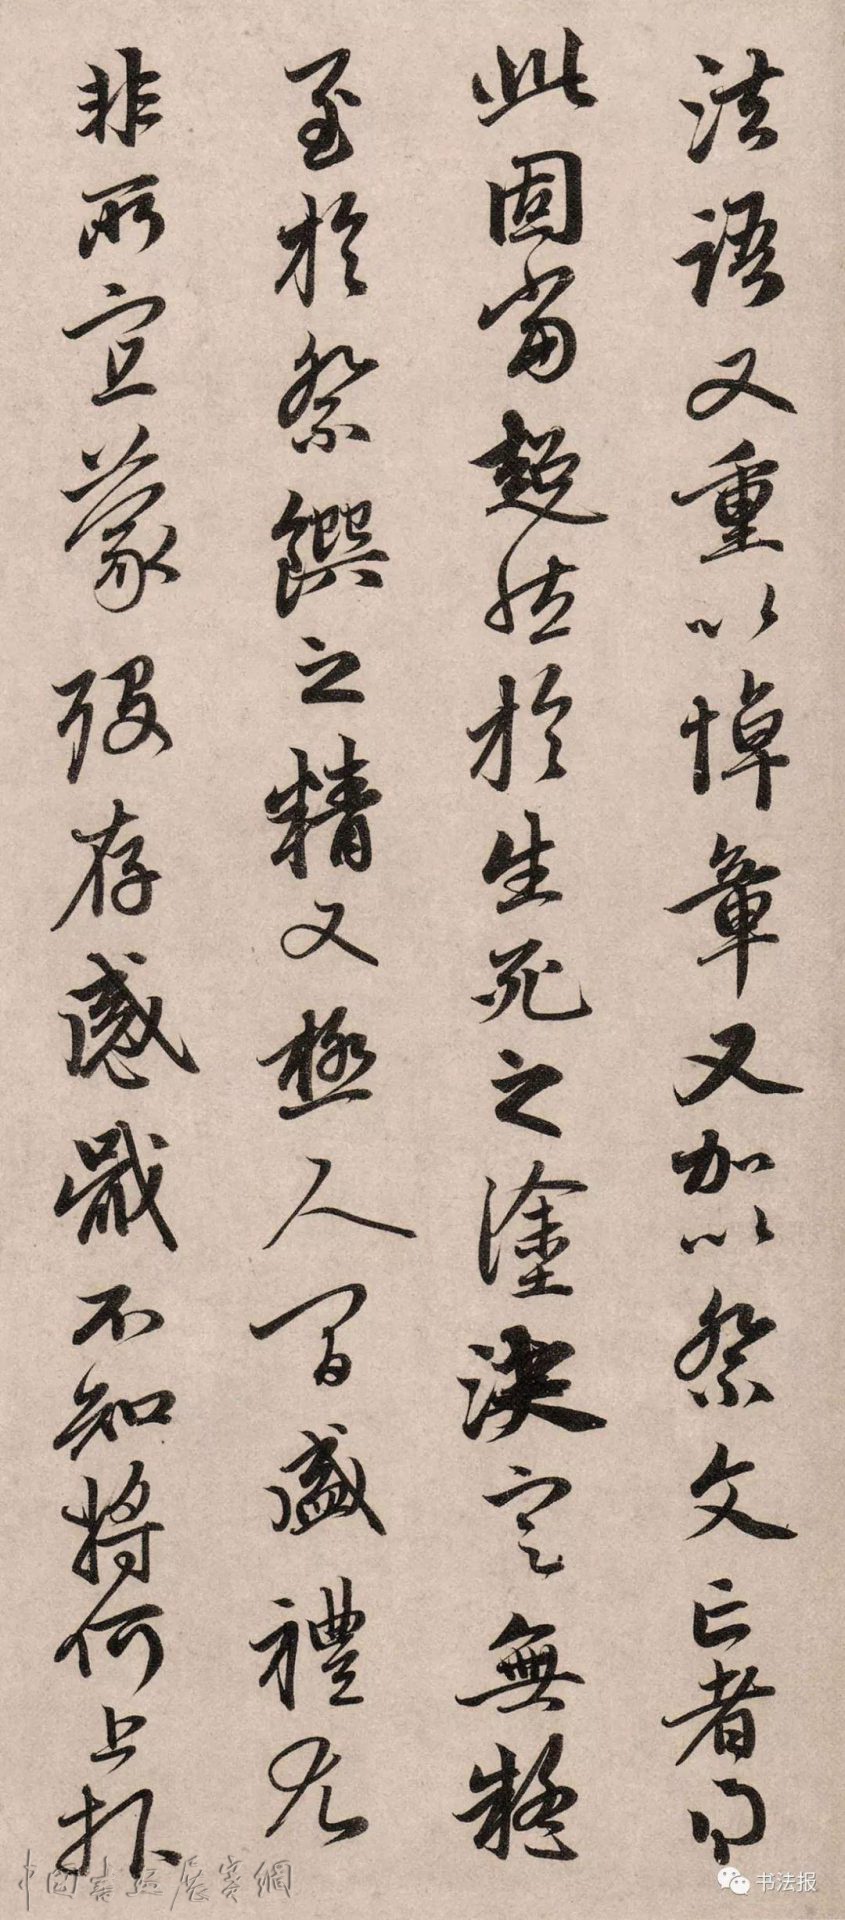 法語又重以悼章又加以祭文亡者得
此固當超然於生死之塗決定無疑
至於祭饌之精又極人間盛禮尤
非所宜蒙歿存感戢不知將何上報
中国书法展赛網
书法报